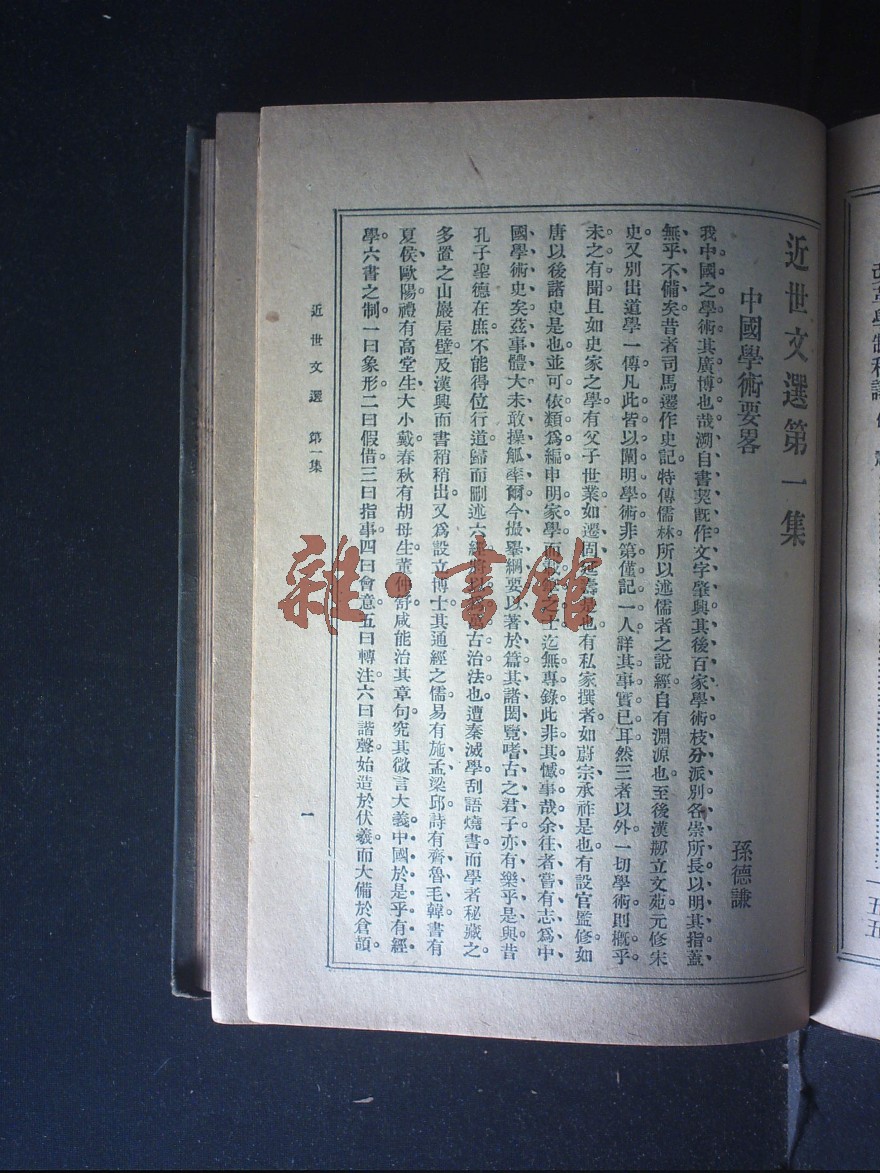 近世文選第一集
中國學術要畧
孫德謙
我中國之學術其廣博也哉溯自書契既作文字肇興其後百家學術枝分派別各崇所長以明其指蓋
無乎不備矣昔者司馬遷作史記特傳儒林所以述儒者之說經自有淵源也至後漢剏立文苑元修宋
史又別出道學一傳凡此皆以闡明學術非第僅記一人詳其事實已耳然三者以外一切學術則概乎
未之有聞且如史家之學有父子世業如遷固也有私家撰者如蔚宗承祚是也有設官監修如
唐以後諸史是也並可依類為編申明家學而士迄無專錄此非其憾事哉余往者嘗有志為中
國學術史矣茲事體大未敢操觚率爾今撮舉綱要以著於篇其諸閎覽嗜古之君子亦有樂乎是與昔
孔子聖德在庶不能得位行道歸而刪述六經將以古治法也遭秦滅學刮語燒書而學者秘藏之
多置之山巖屋壁及漢興而書稍稍出又為設立博士其通經之儒易有施孟梁邱詩有齊魯毛韓書有
夏侯歐陽禮有高堂生大小戴春秋有胡母生董仲舒咸能治其章句究其微言大義中國於是乎有經
學六書之制一曰象形二曰假借三曰指事四曰會意五曰轉注六曰諧聲始造於伏羲而大備於倉頡
近世文選 第一集
一
雜·書館
一五五